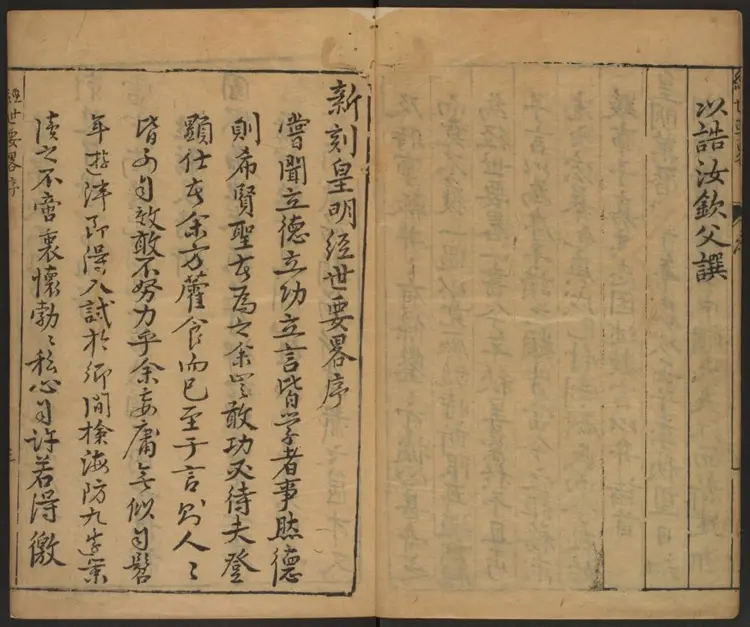 以誥汝欽父譔
新刻皇明經世要畧序
嘗聞立德立功立言皆学者事然德
則希賢聖者為之余豈敢功又待夫登
顯仕者余方藿食而已至于言則人〻
皆可自效敢不努力乎余妄庸無似自髫
年遊泮即得入試於鄉間檢海防九边策
讀之不啻裏懷勃〻私心自許若得徼
經世要畧序